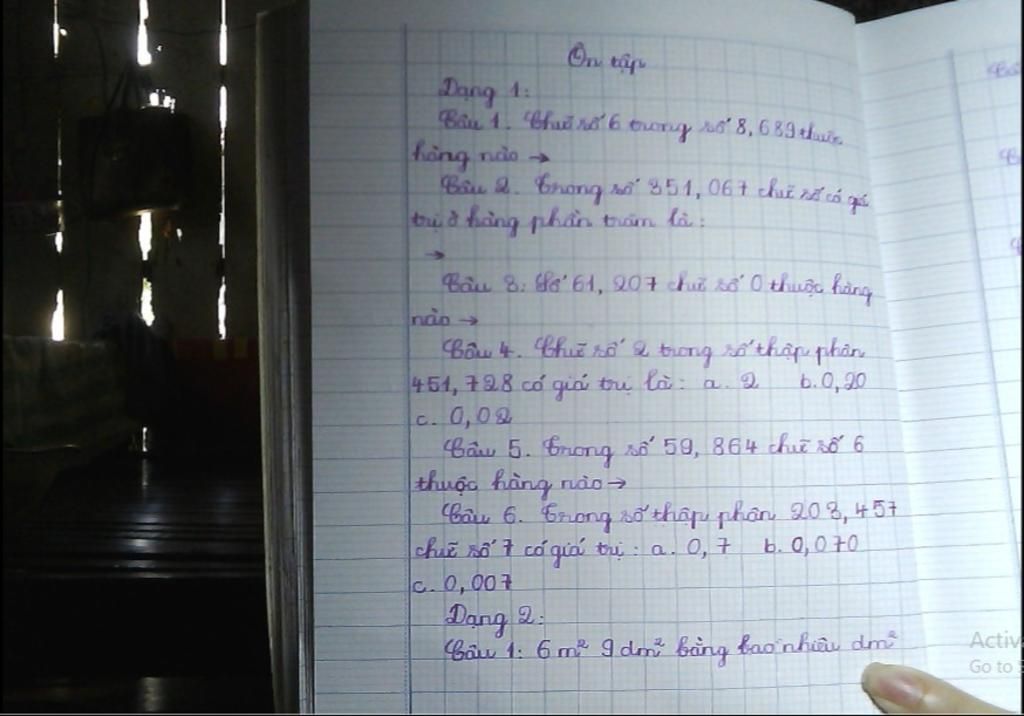 Ôn tập
Dạng 1:
Câu 1. Chữ số 6 trong số 8,689 thuộc
hàng nào →
Câu 2. Trong số 351,067 chữ số có giá
trị ở hàng phần trăm là:
→
Câu 3: Số 61,207 chữ số 0 thuộc hàng
nào →
Câu 4. Chữ số 2 trong số thập phân
451,728 có giá trị là: a. 2 b. 0,20
c. 0,02
Câu 5. Trong số 59,864 chữ số 6
thuộc hàng nào →
Câu 6. Trong số thập phân 203,457
chữ số 7 có giá trị: a. 0,7 b. 0,070
c. 0,007
Dạng 2:
Câu 1: 6m² 9dm² bằng bao nhiêu dm²
Activ
Go to